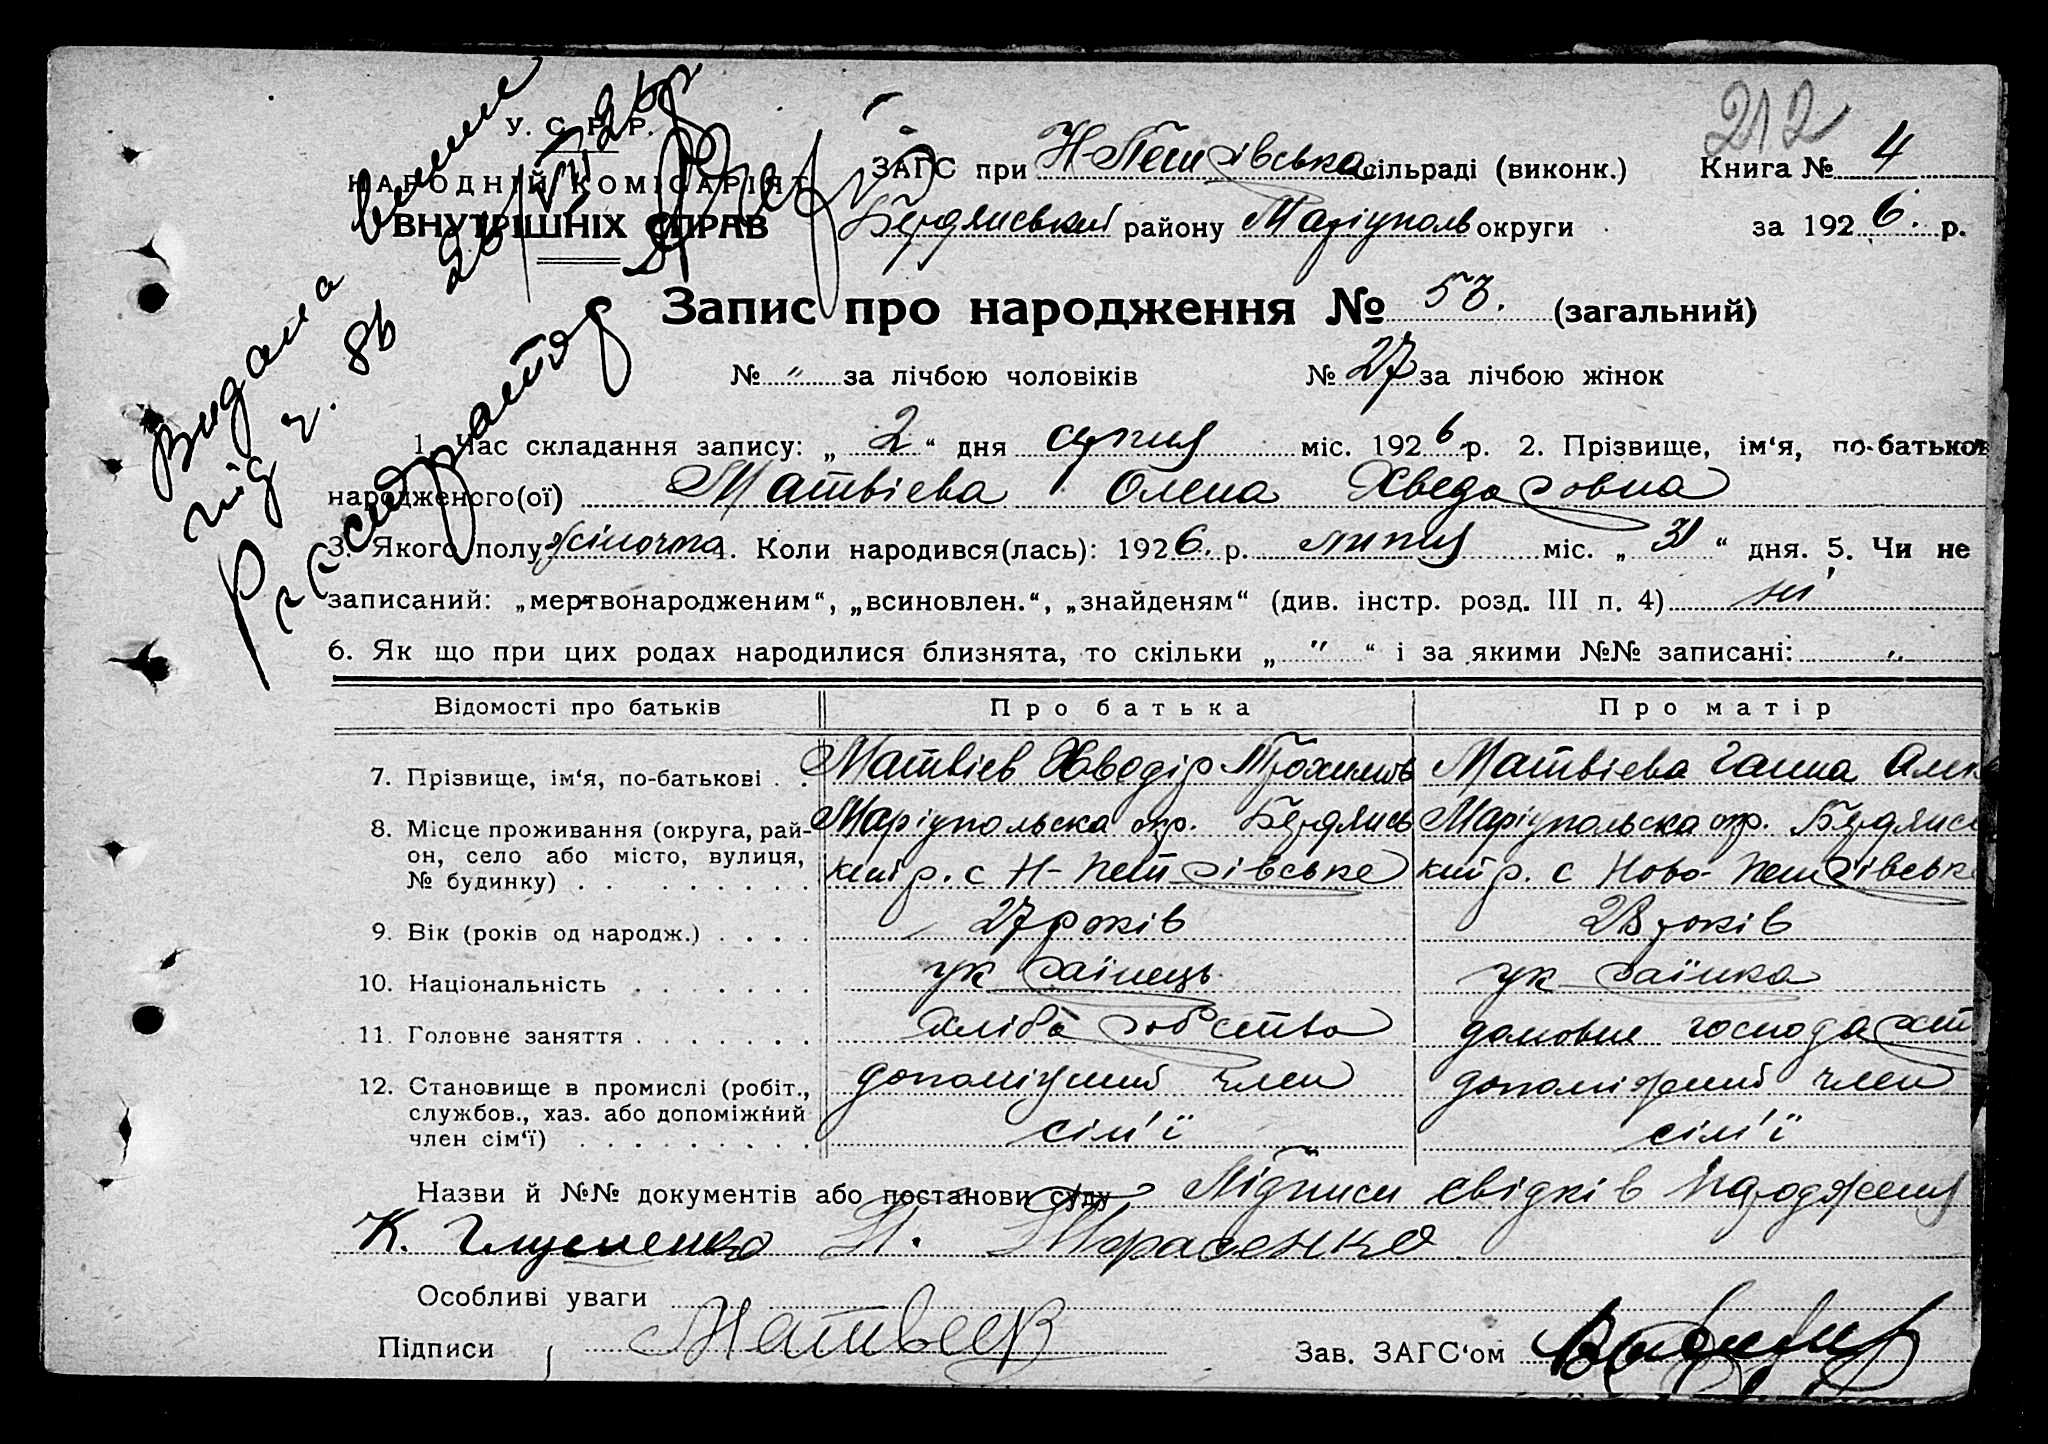 212
У. С. Р. Р.
НАРОДНІЙ КОМІСАРІЯТ
ВНУТРІШНІХ СПРАВ
Видана
під ч. 86 26/VIII 26 р
ЗАГС при Н-Петрівська сільраді (виконк.) Книга № 4
Бердянський району Маріуполь округи за 1926. р.
Запис про народження № 53. (загальний)
№ " за лічбою чоловіків № 27 за лічбою жінок
1. Час складання запису: „ 2 “ дня серпня міс. 1926 р. 2. Прізвище, ім‘я, по-батькові
народженого(ої) Матвієва Олена Хведоровна
3. Якого полу жіночта 4. Коли народився(лась): 1926. р. липня міс. „ 31 “ дня. 5. Чи не
записаний: „мертвонародженим“, „всиновлен.“, „знайденям“ (див. інстр. розд. III п. 4) ні
6. Як що при цих родах народилися близнята, то скільки „ " “ і за якими №№ записані: "
Відомості про батьків Про батька Про матір
7. Прізвище, ім‘я, по-батькові . . Матвієв Хведір Трохимов Матвієва Ганна Алек
8. Місце проживання (округа, рай- Маріупольска окр. Бердянсь Маріупольска окр. Бердянсь
он, село або місто, вулиця, кий р. с Н-Петрівське кий р. с Ново-Петрівське
№ будинку) . . . . . . . .
9. Вік (років од народж.) . . . . 27 років 28 років
10. Національність . . . . . . . українець українка
11. Головне заняття . . . . . . . хліборобство домовне господарст
12. Становище в промислі (робіт., допоміжний член допоміжний член
службов., хаз. або допоміжний
член сім‘ї) . . . . . . . . . сім'ї сім'ї
Назви й №№ документів або постанови суду Підписи свідків народження
К. Глущенко П. Тарасенко
Особливі уваги
Підписи Матвеев Зав. ЗАГС‘ом